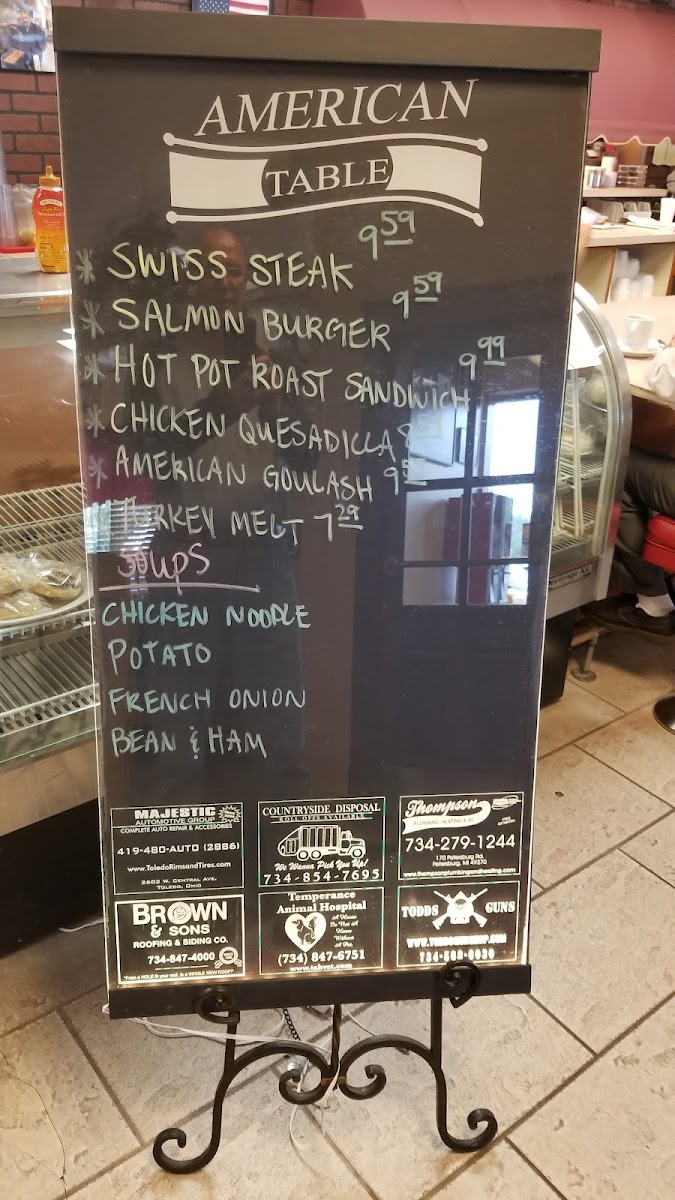 AMERICAN
TABLE
* SWISS STEAK 9 59
* SALMON BURGER 9 59
* HOT POT ROAST SANDWICH 9 99
* CHICKEN QUESADILLA 8
* AMERICAN GOULASH 9
TURKEY MELT 7 29
SOUPS
CHICKEN NOODLE
POTATO
FRENCH ONION
BEAN & HAM
MAJESTIC
AUTOMOTIVE GROUP
COMPLETE AUTO REPAIR & ACCESSORIES
419-480-AUTO (2886)
www.ToledoRimsandTires.com
2602 W. CENTRAL AVE.
TOLEDO, OHIO
COUNTRYSIDE DISPOSAL
ROLL OFFS AVAILABLE
We Wanna Pick You Up!
734-854-7695
Thompson
PLUMBING, HEATING & AC
734-279-1244
170 Petersburg Rd.
Petersburg, MI 49270
www.thompsonplumbingandheating.com
BROWN
& SONS
ROOFING & SIDING CO.
734-847-4000
"From a HOLE in your roof, to a WHOLE NEW ROOF!"
Temperance
Animal Hospital
A House
Is Not A
Home
Without
A Pet.
(734) 847-6751
www.tahvet.com
TODDS GUNS